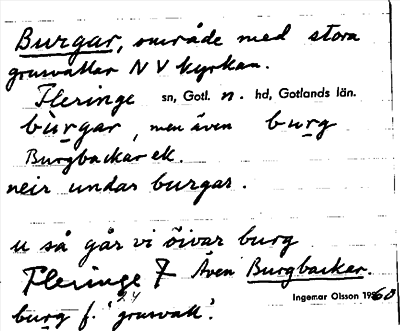 Burgar, område med stora
grusvallar NV kyrkan.
Fleringe sn, Gotl. n. hd, Gotlands län.
bùrgar, men även burg
Burgbackar ek.
neir undar burgar.
u så går vi öivar burg
Fleringe 7 Även Burgbacker.
Ingemar Olsson 1960
burg f. 'grusvall'.